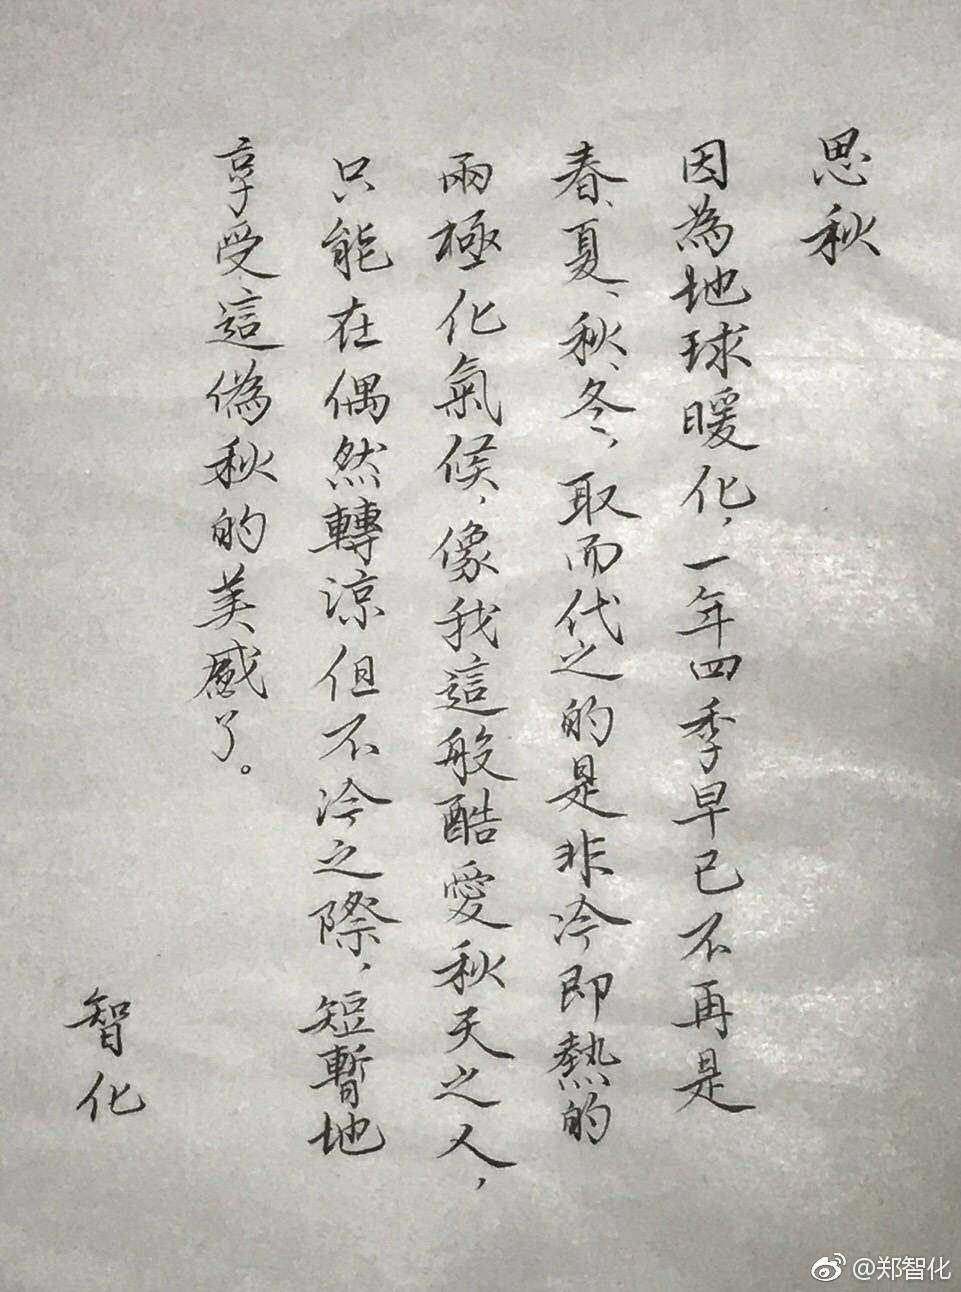 思秋
因為地球暖化，一年四季早已不再是
春、夏、秋、冬，取而代之的是非冷即熱的
兩極化氣候，像我這般酷愛秋天之人，
只能在偶然轉涼但不冷之際，短暫地
享受這偽秋的美感了。
智化
@郑智化